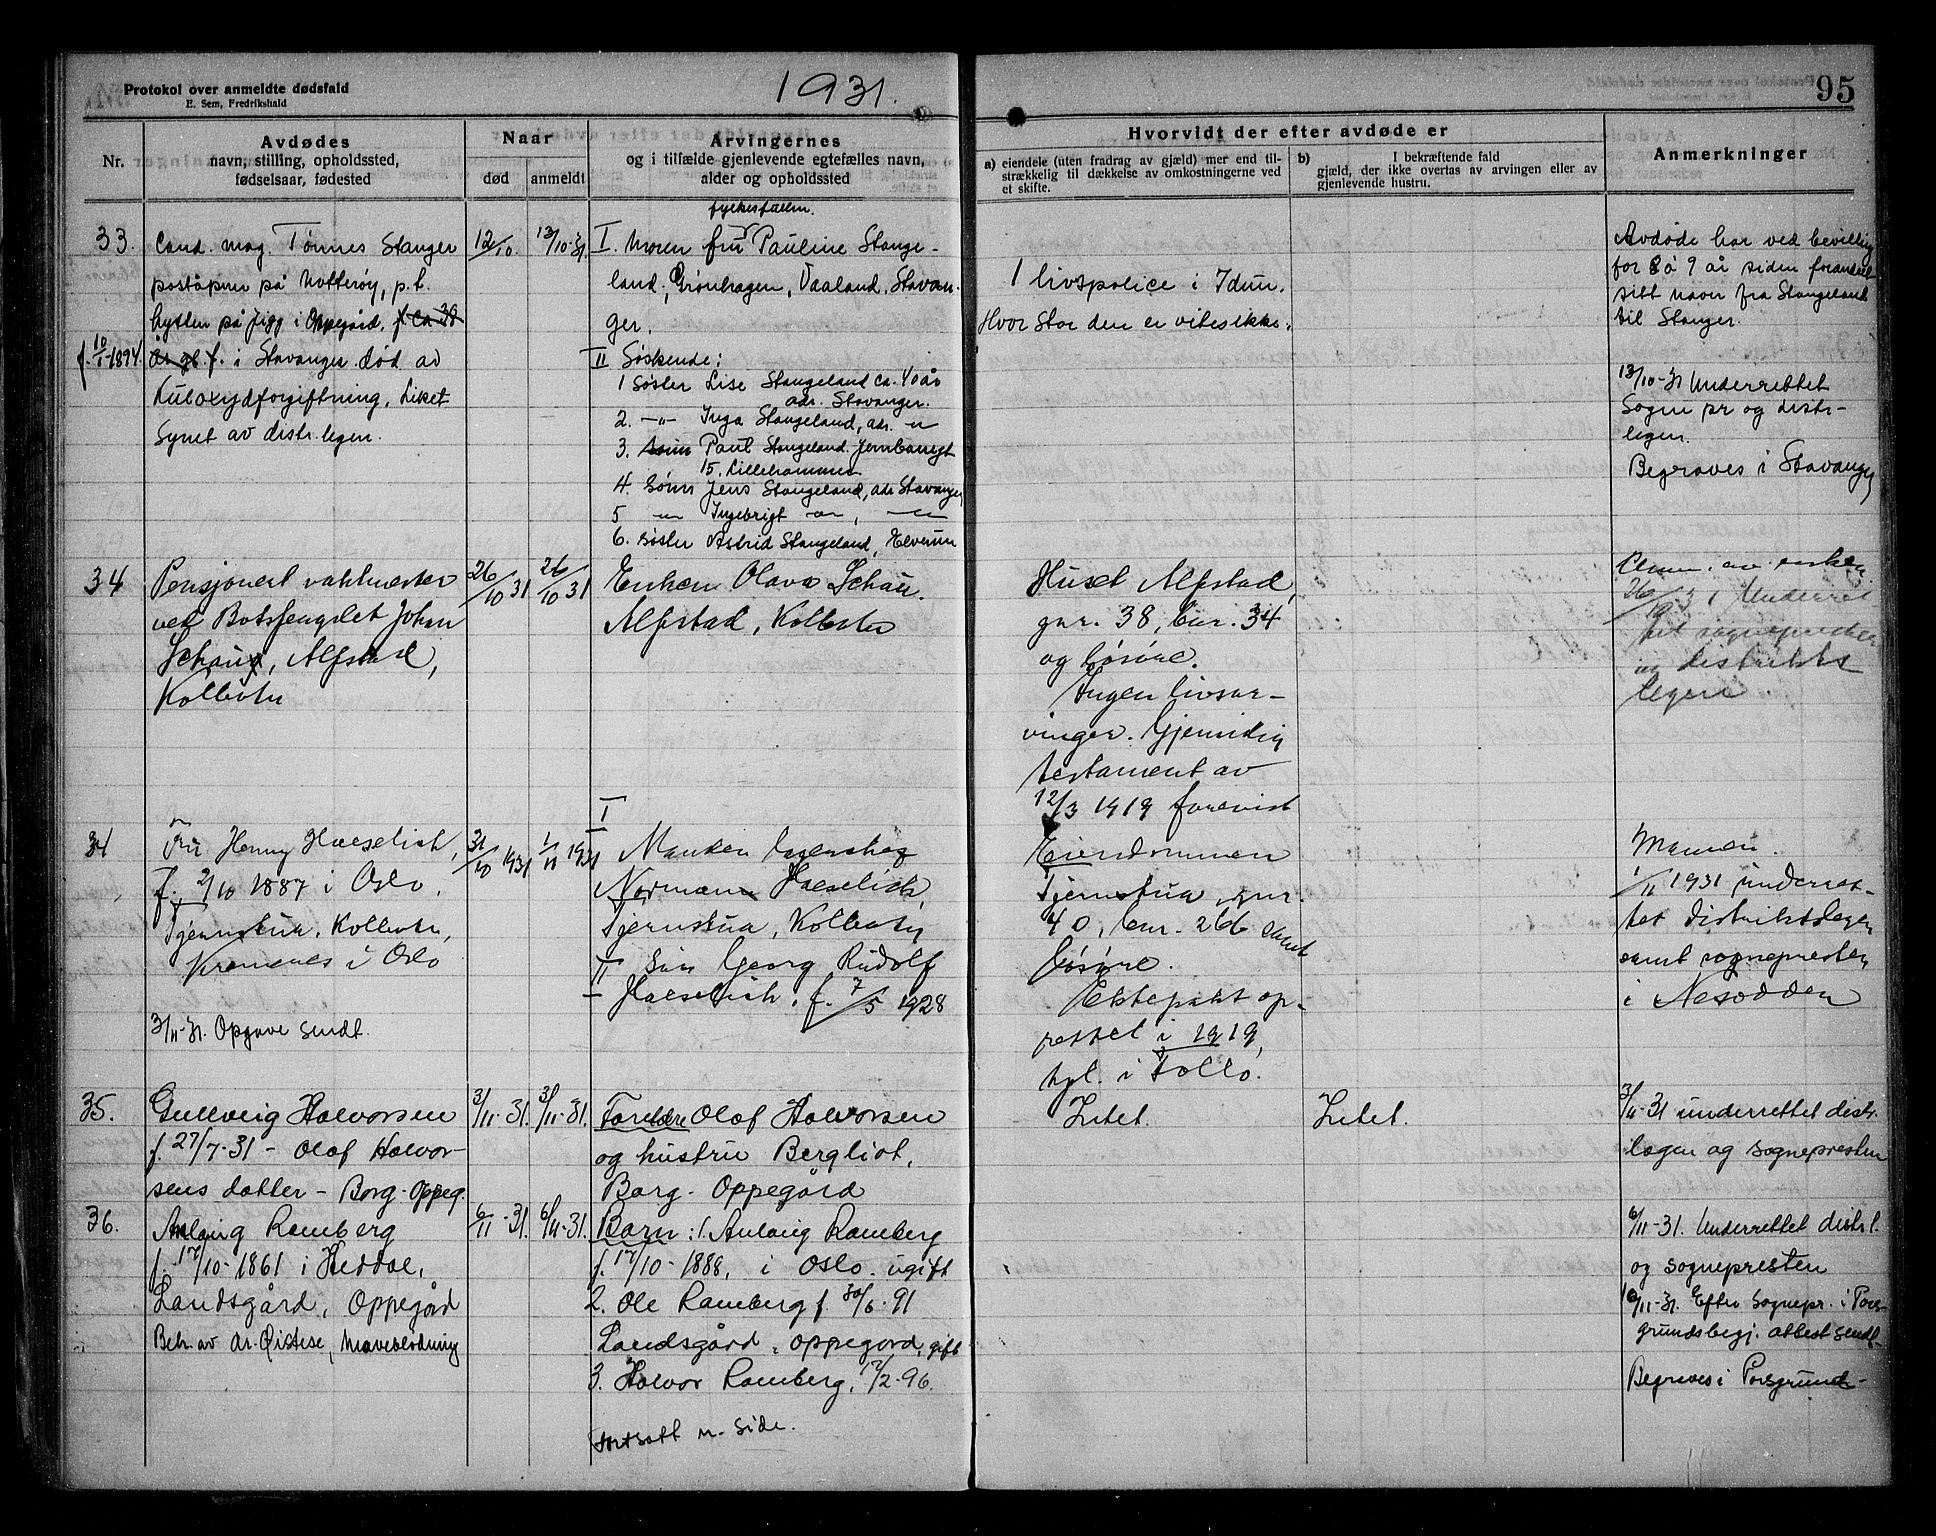 Protokol over anmeldte dødsfald
E. Sem, Fredrikshald
1931.
95
Nr.
Avdødes
navn, stilling, opholdssted,
fødselsaar, fødested
Naar
død
anmeldt
Arvingernes
og i tilfælde gjenlevende egtefælles navn,
alder og opholdssted
Hvorvidt der efter avdøde er
a) eiendele (uten fradrag av gjæld) mer end til-
strækkelig til dækkelse av omkostningerne ved
et skifte.
b) I bekræftende fald
gjæld, der ikke overtas av arvingen eller av
gjenlevende hustru.
Anmerkninger
33.
Cand. mag. Tønnes Stanger
poståpner på Nøtterøy, p.t.
hytten på Jigg i Oppegård, f. ca 38
f. 10/1-1894 år gl. f. i Stavanger død av
Kuloxydforgiftning. Liket
synet av distr.legen.
12/10.
13/10-31
I. Moren fru Pauline Stange-
land, Grønhagen, Vaaland, Stavan-
ger.
II Søskende:
1 Søster Lise Stangeland ca. 40 år
adr. Stavanger.
2. -"- Inga Stangeland, adr. -"-
3. Paul Stangeland. Jernbanegt
15. Lillehammer
4. Sønn Jens Stangeland, adr Stavanger,
5 -"- Ingebrigt -"-, -"-
6. søster Astrid Stangeland, Elverum
1 livspolice i Idun.
Hvor stor den er vites ikke.
Avdøde har ved bevilling
for 8 à 9 år siden forandret
sitt navn fra Stangeland
til Stanger.
13/10-31 Underrettet
Sogne pr og distr-
legen.
Begraves i Stavanger
34
Pensjonert vaktmester
ved Botsfengslet Johan
Schau, Alfstad,
Kolbotn
26/10 31
26/10 31
Enken Olava Schau.
Alfstad, Kolbotn
Huset Alfstad,
gnr. 38, bnr. 34
og løsøre.
Ingen livsar-
vinger. Gjensidig
testament av
12/3 1919 forevist
Anm. av enken
26/10 31 Underret
tet sognepresten
og distrikts
legen
34
Fru Henny Haeselich,
f. 2/10 1887 i Oslo.
Tjernstua, Kolbotn,
Kremeres i Oslo
3/11-31. Opgave sendt.
31/10 1931
1/11 1931
I
Manken
Normann Haeselich,
Tjernstua, Kolbotn
II Søn Georg Rudolf
Haeselich, f. 7/5 1928
Eiendommen
Tjernstua, gnr.
40, bnr. 266 samt
løsøre.
Ektepakt op-
rettet i 1919,
tgl. i Follo.
Mannen.
1/11 1931 underret-
tet distriktslegen
samt sognepresten
i Nesodden
35.
Gullveig Halvorsen
f. 27/7-31 - Olaf Halvor-
sens datter - Borg-Oppeg.
3/11-31.
3/11-31.
Foreldre Olaf Halvorsen
og hustru Bergliot,
Borg - Oppegård
Intet.
Intet.
3/11-31 underrettet distr.
legen og sognepresten
36.
Aslaug Ramberg
f. 17/10-1861 i Heddal,
Landsgård, Oppegård
Beh. av dr. Qistese, Maveblødning
6/11-31.
6/11-31.
Barn: 1. Anlaug Ramberg
f. 17/10-1888, i Oslo. ugift
2. Ole Ramberg f. 30/6-91
Landsgård, Oppegård, gift
3. Halvor Ramberg, 17/2-96.
Fortsatt n. side.
6/11-31. Underrettet distr.l.
og sognepresten
10/11-31. Efter sognepr. i Pors-
grunds begj. attest sendt.
Begraves i Porsgrund-